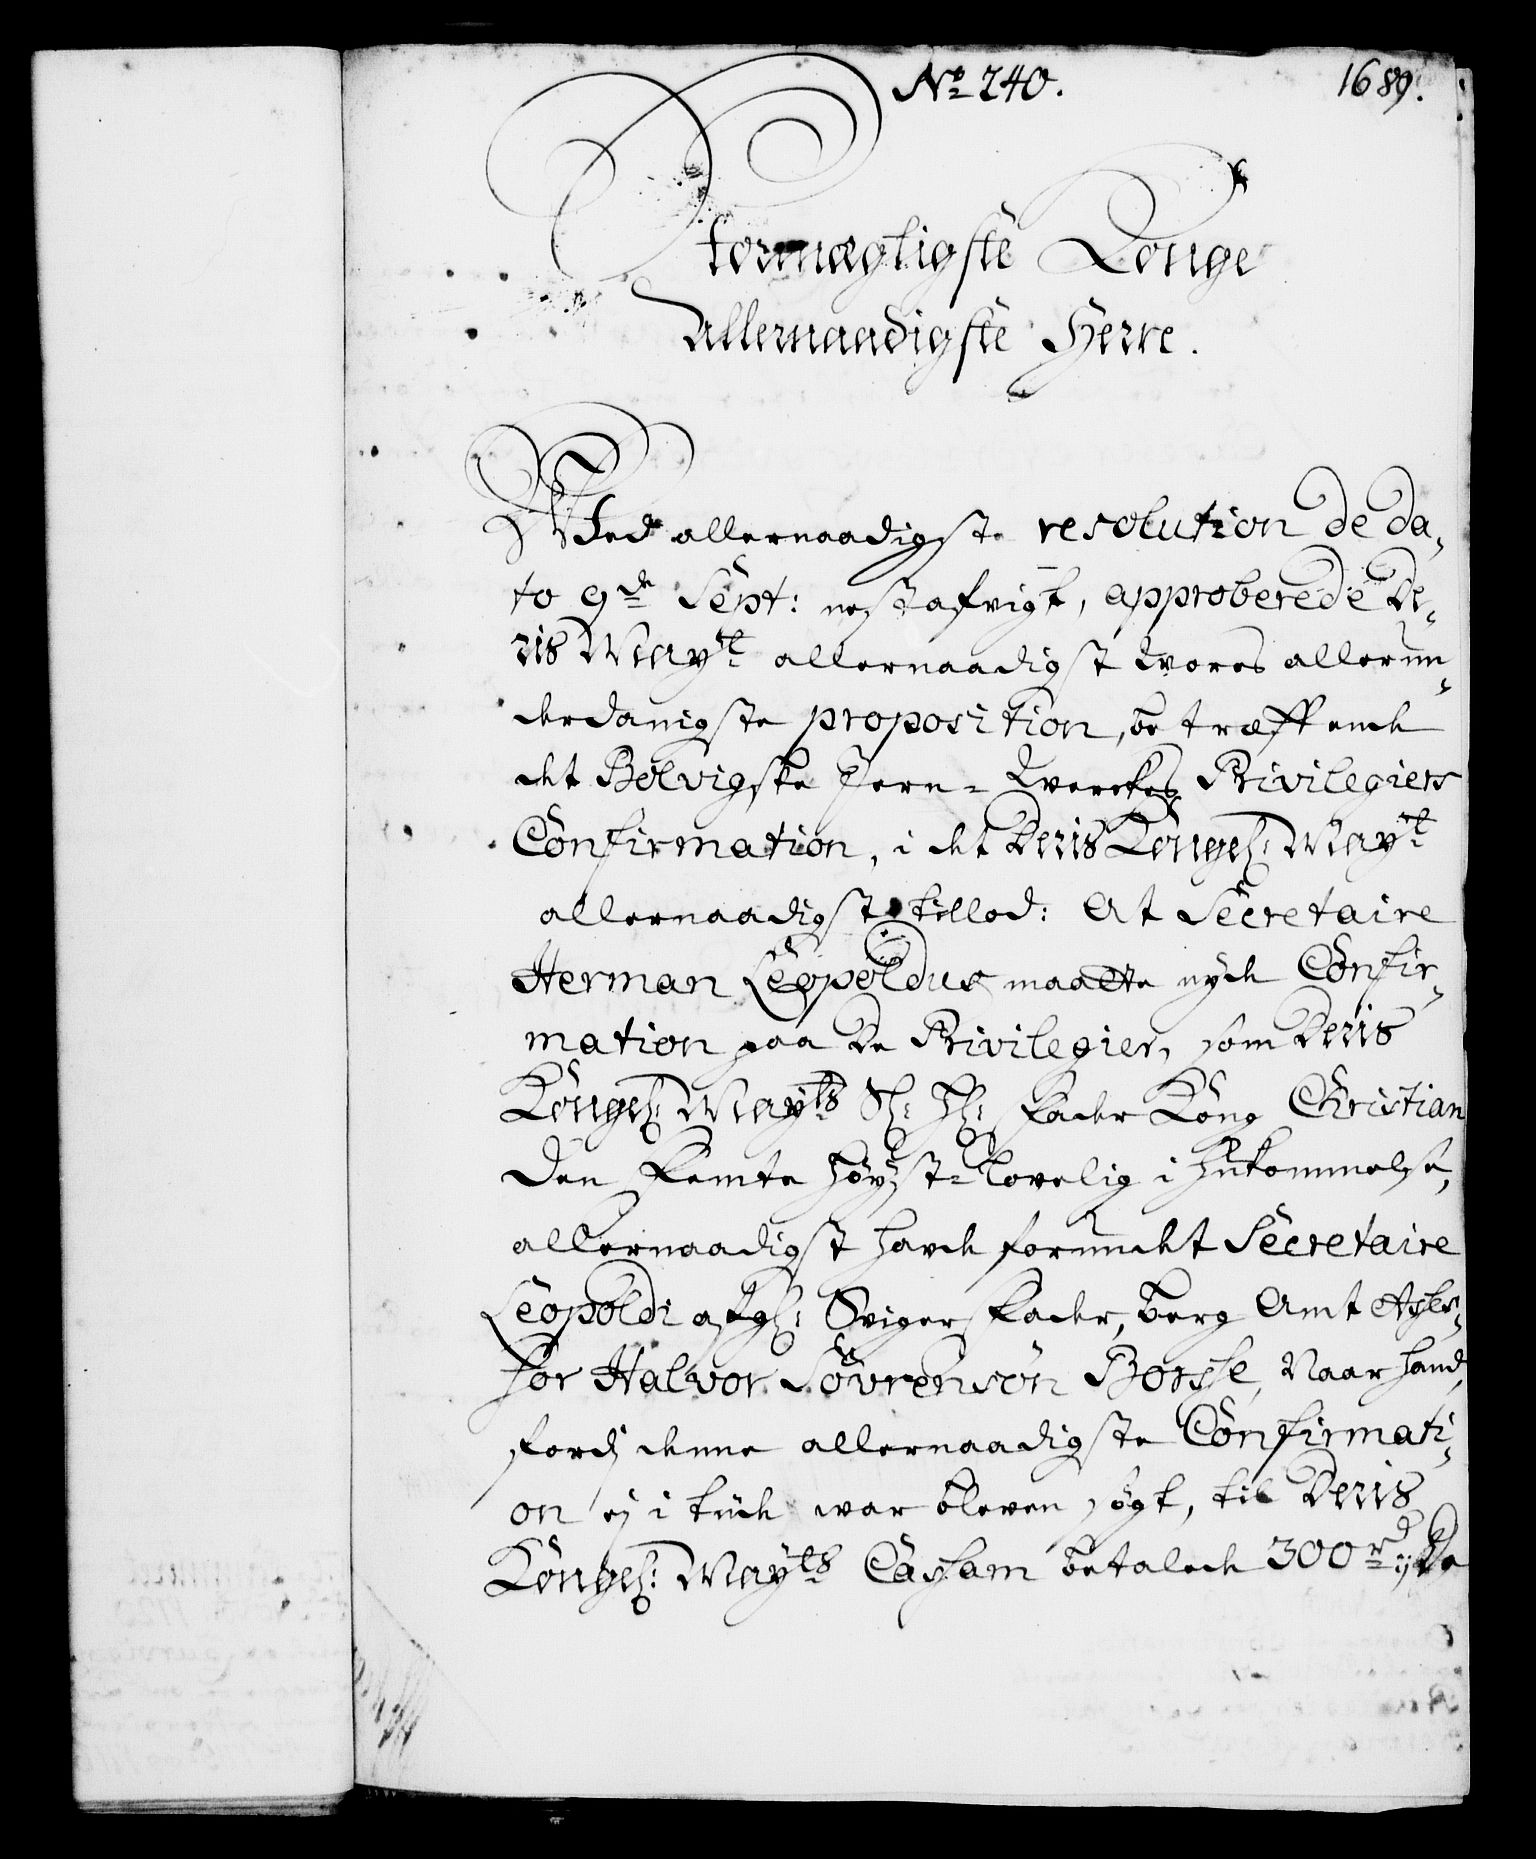 No 240. 1689.
Stormægtigste Konge
Allernaadigste Herre.
Wed allernaadigste resolution de da-
to 9de Sept: nestafvigt, approberede De-
ris Mayt allernaadigst wores allerun-
derdanigste proposition, betræffende
det Bolvigske Jern-Werckes Privilegiers
Confirmation, i det Deris Kongel: Mayt
allernaadigst tillod: At Secretaire
Herman Leopoldus maatte nyde Confir-
mation paa De Privilegier, som Deris
Kongel: Mayts Sl: Hr: Fader Kong Christian
Den Femte Høyst-lovelig i Hukommelse,
allernaadigst hafde forundt Secretaire
Leopoldi afgl: Sviger Fader, berg Amt Asses-
sor Halvor Sövrensön Borse, Naar hand,
fordj denne allernaadigste Confirmati-
on ej i tide war bleven søgt, til Deris
Kongel: Mayts Cassam betalede 300 rd: De